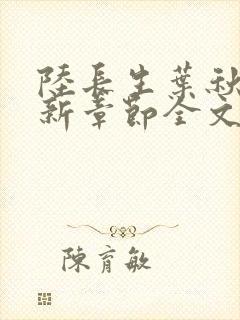 陸長生葉秋
新章節全文
陳育敏